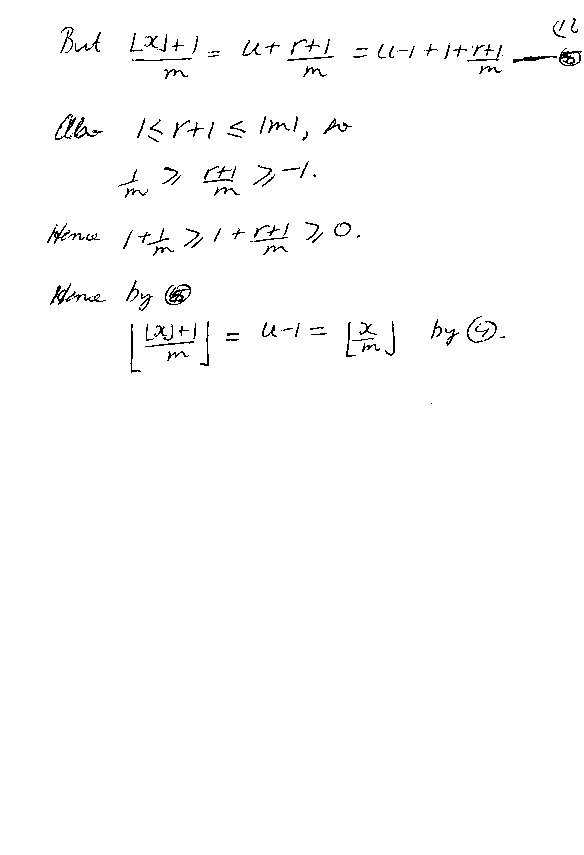 (12
But (⌊x⌋+1)/m = u + (r+1)/m = u-1+1+(r+1)/m —⑤
Also 1 ≤ r+1 ≤ |m|, so
1/m ⩾ (r+1)/m ⩾ -1.
Hence 1+1/m ⩾ 1+(r+1)/m ⩾ 0.
Hence by ⑤
⌊(⌊x⌋+1)/m⌋ = u-1 = ⌊x/m⌋ by ④.